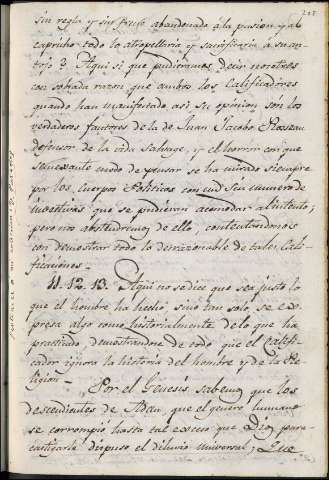 sin regla y sin freno abandonado á la pasion y al
capricho todo lo atropellaria y sacrificaria a su an-
tojo? Aqui si que pudieramos decir nosotros
con sobrada razon que ambos los Calificadores
quando han manifestado asi su opinion son los
verdaderos fautores de la de Juan Jacobo Roseau
defensor de la vida salvage, y el horror con que
semejante modo de pensar se ha mirado siempre
por los Cuerpos Politicos con un sin numero de
invectivas que se pudieran acomodar al intento;
pero nos abstendremos de ello, contentandonos
con demostrar todo lo desrazonable de tales Cali-
ficaciones.
11. 12. 13. Aqui no se dice que sea justo lo
que el hombre ha hecho, sino tan solo se ex-
presa algo como historialmente de lo que ha
practicado, demostrandose de todo que el Califi-
cador ignora la historia del hombre y de la Re-
ligion.
Por el Genesis sabemos que los
descendientes de Adan, que el genero humano
se corrompió hasta tal exceso que Dios para
castigarle dispuso el diluvio universal; Que